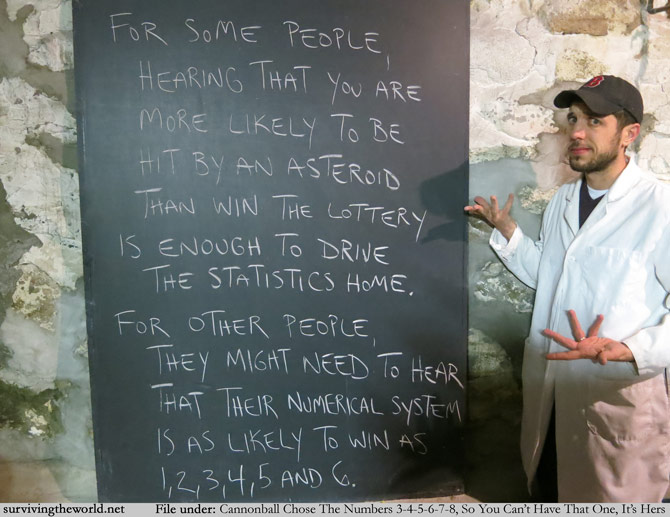 FOR SOME PEOPLE,
HEARING THAT YOU ARE
MORE LIKELY TO BE
HIT BY AN ASTEROID
THAN WIN THE LOTTERY
IS ENOUGH TO DRIVE
THE STATISTICS HOME.
FOR OTHER PEOPLE,
THEY MIGHT NEED TO HEAR
THAT THEIR NUMERICAL SYSTEM
IS AS LIKELY TO WIN AS
1,2,3,4,5 AND 6.
survivingtheworld.net File under: Cannonball Chose The Numbers 3-4-5-6-7-8, So You Can't Have That One, It's Hers